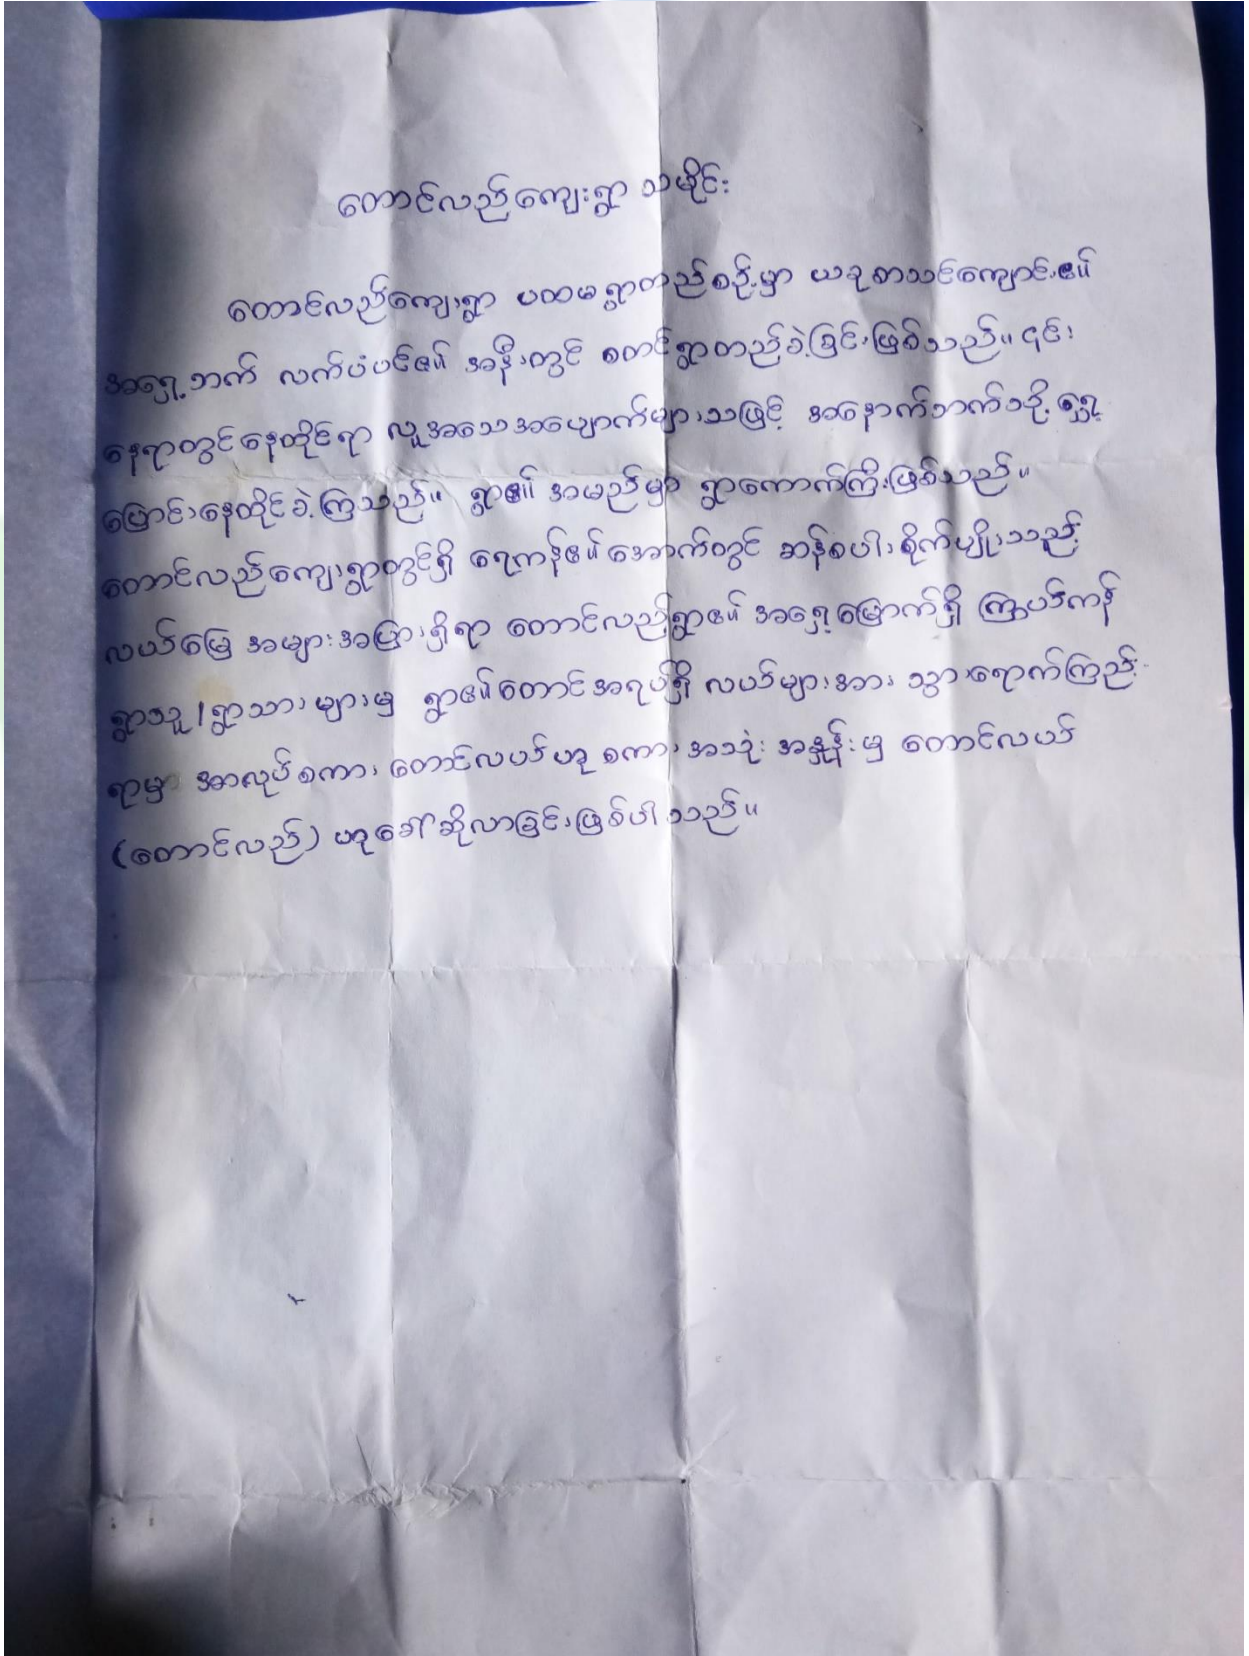 တောင်လည်ကျေးရွာ သမိုင်း
တောင်လည်ကျေးရွာ ပထမရွာတည်စဉ်မှာ ယခုစာသင်ကျောင်း၏
အရှေ့ဘက် လက်ပံပင်၏ အနီးတွင် စတင်ရွာတည်ခဲ့ခြင်းဖြစ်သည်။ ၎င်း
နေရာတွင်နေထိုင်ရာ လူအသေအပျောက်များသဖြင့် အနောက်ဘက်သို့ ရွှေ့
ပြောင်းနေထိုင်ခဲ့ကြသည်။ ရွာ၏ အမည်မှာ ရွာကောက်ကြီးဖြစ်သည်။
တောင်လည်ကျေးရွာတွင်ရှိ ရေကန်၏အောက်တွင် ဆန်စပါးစိုက်ပျိုးသည့်
လယ်မြေ အများအပြားရှိရာ တောင်လည်ရွာ၏ အရှေ့မြောက်ရှိ ကြာပင်ကန်
ရွာသူ/ရွာသားများမှ ရွာ၏တောင်အရပ်ရှိ လယ်များအား သွားရောက်ကြည့်
ရာမှာ အာလုပ်စကား တောင်လယ်ဟု စကားအသုံး အနှုန်းမှ တောင်လယ်
(တောင်လည်) ဟုခေါ်ဆိုလာခြင်းဖြစ်ပါသည်။